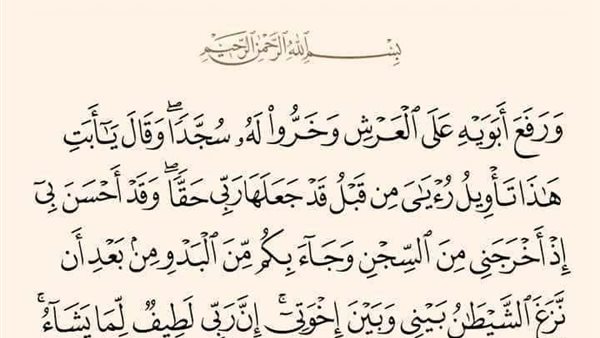 بِسْمِ اللَّهِ الرَّحْمَٰنِ الرَّحِيمِ
وَرَفَعَ أَبَوَيْهِ عَلَى ٱلْعَرْشِ وَخَرُّوا۟ لَهُۥ سُجَّدًۭا ۖ وَقَالَ يَـٰٓأَبَتِ
هَـٰذَا تَأْوِيلُ رُءْيَـٰىَ مِن قَبْلُ قَدْ جَعَلَهَا رَبِّى حَقًّۭا ۖ وَقَدْ أَحْسَنَ بِىٓ
إِذْ أَخْرَجَنِى مِنَ ٱلسِّجْنِ وَجَآءَ بِكُم مِّنَ ٱلْبَدْوِ مِنۢ بَعْدِ أَن
نَّزَغَ ٱلشَّيْطَـٰنُ بَيْنِى وَبَيْنَ إِخْوَتِىٓ ۚ إِنَّ رَبِّى لَطِيفٌۭ لِّمَا يَشَآءُ ۚ